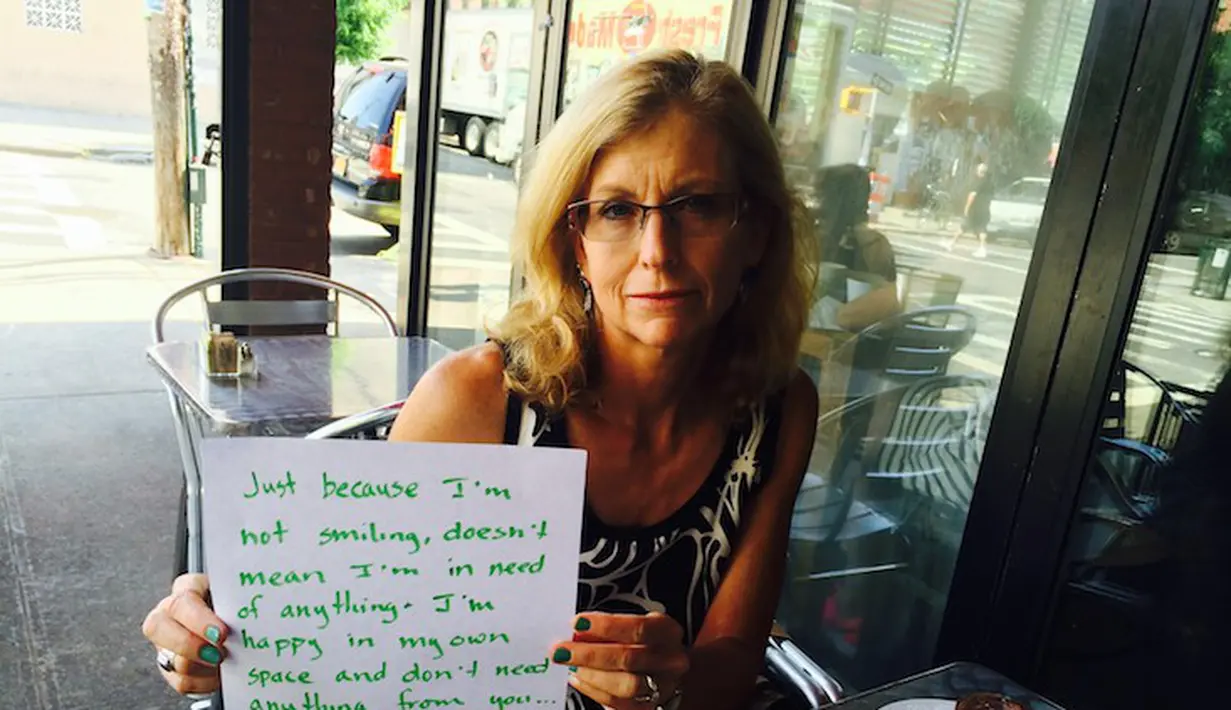 Fresh Made
Just because I'm
not smiling, doesn't
mean I'm in need
of anything. I'm
happy in my own
space and don't need
anything from you...